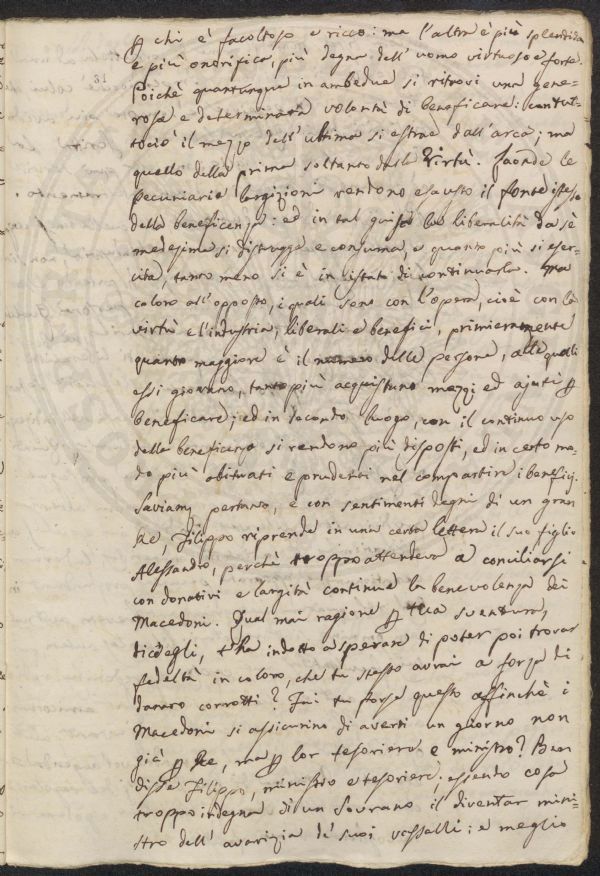 ꝑ chi è facoltoso e ricco: ma l'altra è più splendida
e più onorifica, più degna dell'uomo virtuoso e forte.
Poichè quantunque in ambedue si ritrovi una gene=
rosa e determinata volontà di beneficare: contut=
tociò il mezzo dell'ultima si estrae dall'arca; ma
quello della prima soltanto dalla Virtù. Laonde le
pecuniarie largizioni rendono esausto il fonte istesso
della beneficenza: ed in tal guisa la liberalità da sè
medesima si distrugge e consuma, e quanto più si eser=
cita, tanto meno si è in istato di continuarla. Ma
coloro all'opposto, i quali sono con l'opera, cioè con la
virtù e l'industria, liberali e benefici, primieramente
quanto maggiore è il numero delle persone, alle quali
essi giovano, tanto più acquistano mezzi ed ajuti ꝑ
beneficare; ed in secondo luogo, con il continuo uso
della beneficenza si rendono più disposti, ed in certo mo=
do più abituati e prudenti nel compartire i beneficj.
Saviamte pertanto, e con sentimenti degni di un gran
Re, Filippo riprende in una certa lettera il suo figlio
Alessandro, perchè troppo attendeva a conciliarsi
con donativi e largità continue la benevolenza dei
Macedoni. Qual mai ragione ꝑ tua sventura,
dicegli, t'ha indotto a sperare di poter poi trovar
fedeltà in coloro, che tu stesso avrai a forza di
danaro corrotti? Fai tu forse questo affinchè i
Macedoni si assicurino di averti un giorno non
già ꝑ Re, ma ꝑ lor tesoriere e ministro? Ben
disse Filippo, ministro e tesoriere, essendo cosa
troppo indegna di un Sovrano il diventar mini=
stro dell'avarizia de' suoi vassalli: e meglio